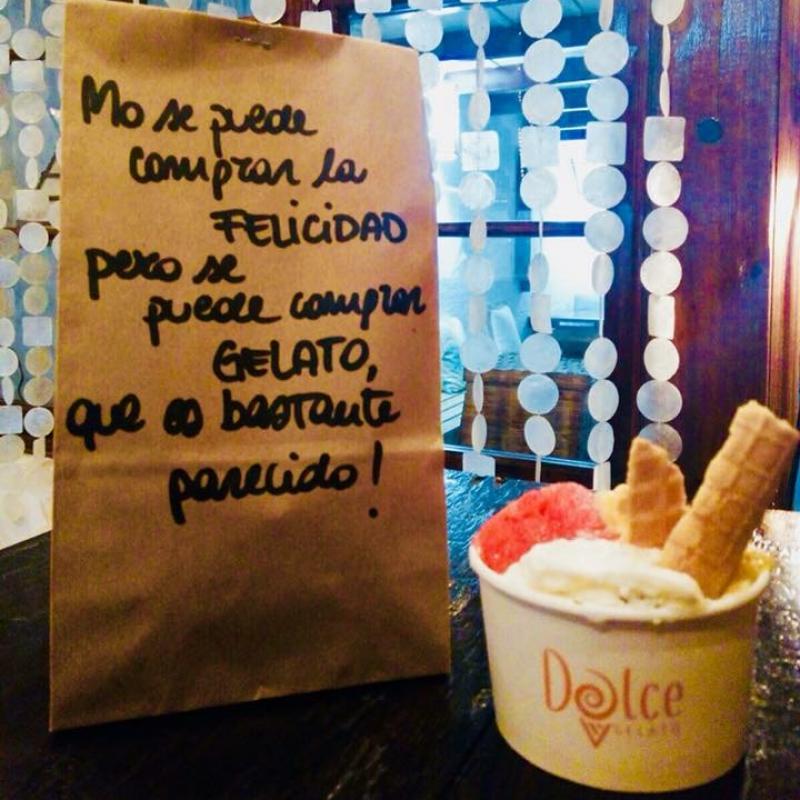 No se puede
comprar la
FELICIDAD
pero se
puede comprar
GELATO,
que es bastante
parecido!
Dolce
GELATO